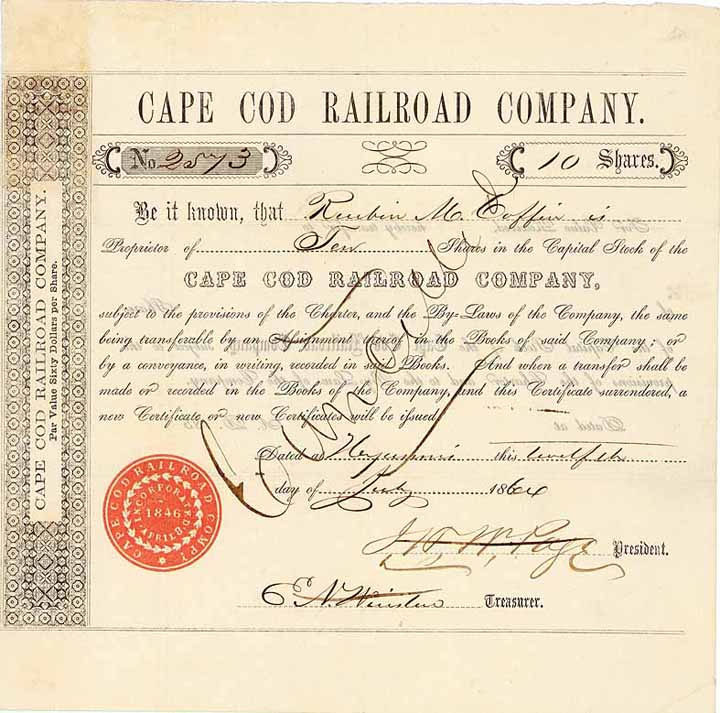 CAPE COD RAILROAD COMPANY.
No. 2573
10 Shares.
Be it known, that Reubin M. Coffin is
Proprietor of Ten Shares in the Capital Stock of the
CAPE COD RAILROAD COMPANY,
subject to the provisions of the Charter, and the By-Laws of the Company, the same
being transferable by an Assignment thereof in the Books of said Company; or
by a conveyance, in writing, recorded in said Books. And when a transfer shall be
made or recorded in the Books of the Company, and this Certificate surrendered, a
new Certificate or new Certificates will be issued.
Dated at Hyannis this twelfth
day of July 1864
President.
Treasurer.
Cancelled
CAPE COD RAILROAD COMPANY.
Par Value Sixty Dollars per Share.
CAPE COD RAILROAD COMPY.
INCORPORATED
1846
APRIL